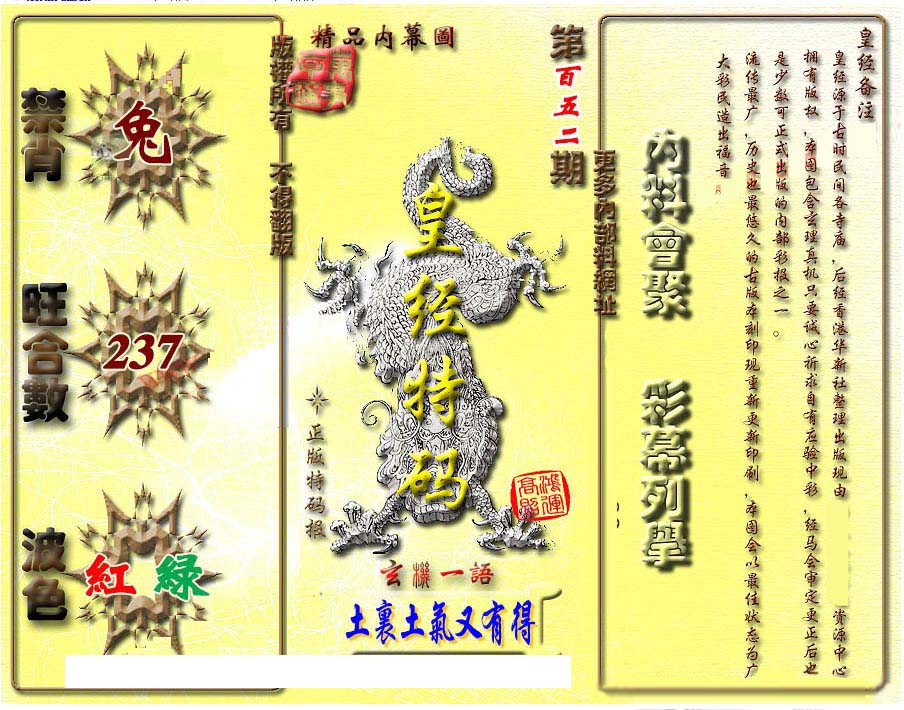 皇经备注
皇经源于古时民间各寺庙，后经香港华新社整理出版现由 资源中心
拥有版权，本图包含玄理真机只要诚心祈求自有应验中彩，经马会审定更正后也
是少数可正式出版的内部彩报之一。
流传最广，历史也最悠久的古版本刻印现重新更新印刷，本图会以最佳状态为广
大彩民造出福音
內料會聚 彩幕列舉
更多內部料網址
第百五二期
精品内幕圖
皇经特码
正版特码报
鴻運
高照
玄機一語
土裏土氣又有得
版權所有 不得翻版
禁肖
兔
旺合數
237
波色
紅 綠